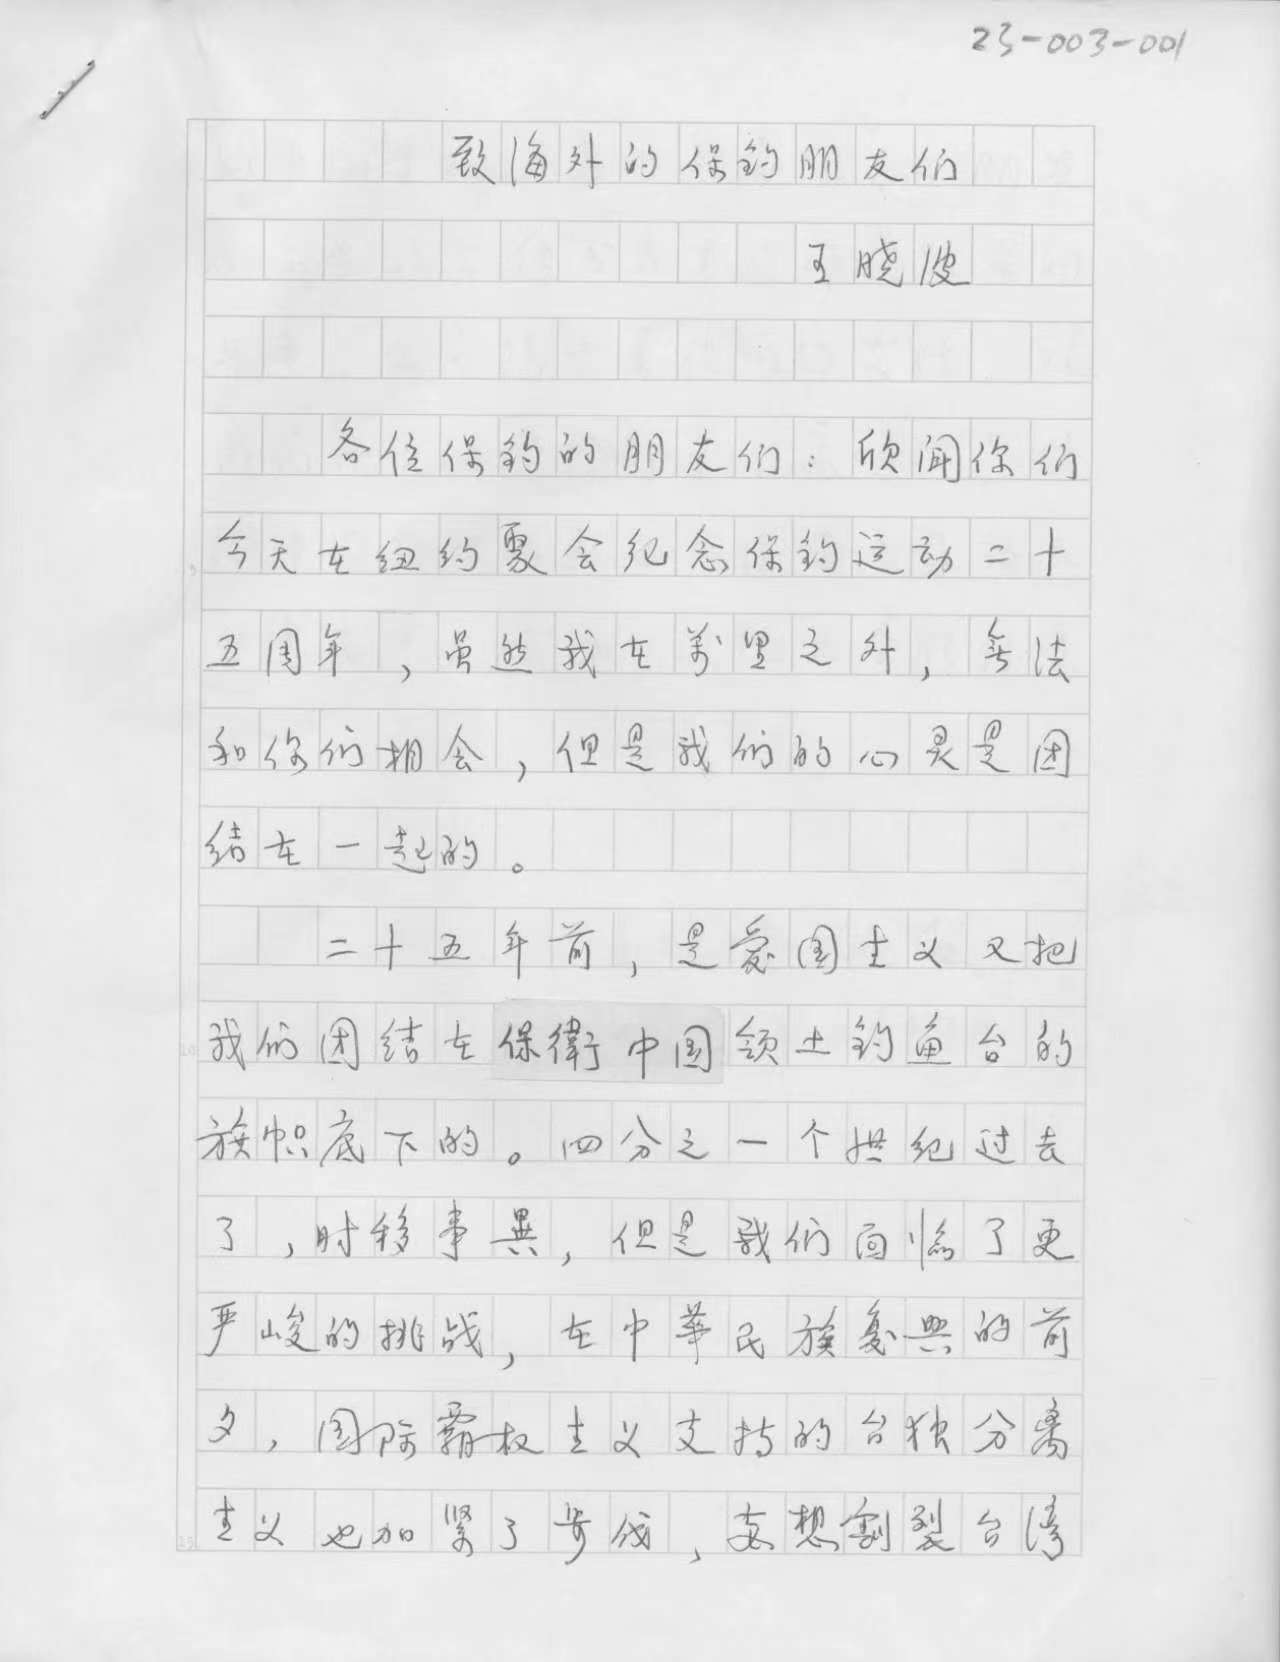 23-003-001
致海外的保钓朋友们
王晓波
各位保钓的朋友们：欣闻你们
今天在纽约聚会纪念保钓运动二十
五周年，虽然我在万里之外，无法
和你们相会，但是我们的心灵是团
结在一起的。
二十五年前，是爱国主义又把
我们团结在保衛中国领土钓鱼台的
旗帜底下的。四分之一个世纪过去
了，时移事異，但是我们面临了更
严峻的挑战，在中華民族复兴的前
夕，国际霸权主义支持的台独分离
主义也加紧了步伐，妄想割裂台湾